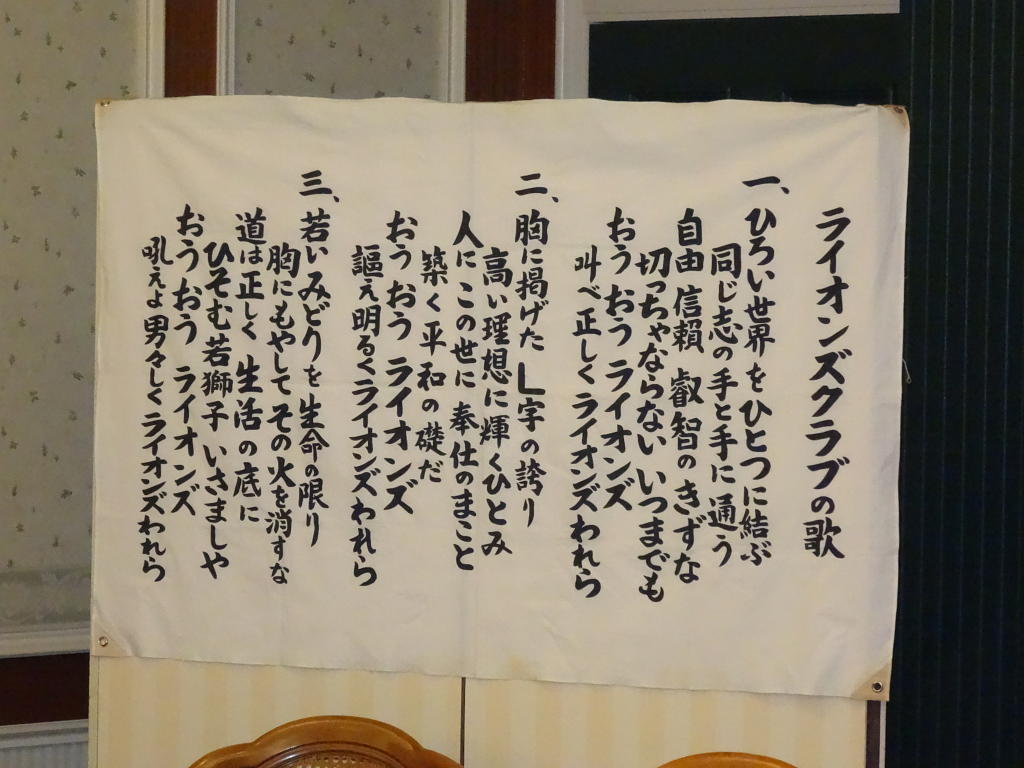 ライオンズクラブの歌
一、ひろい世界を ひとつに結ぶ
同じ志の手と手に 通う
自由 信頼 叡智のきずな
切っちゃならない いつまでも
おう おう ライオンズ
叫べ正しくライオンズわれら
二、胸に掲げた L字の誇り
高い理想に輝くひとみ
人に この世に 奉仕のまこと
築く平和の礎だ
おう おう ライオンズ
謳え明るくライオンズわれら
三、若いみどりを 生命の限り
胸にもやして その火を消すな
道は正しく 生活の底に
ひそむ若獅子 いさましや
おう おう ライオンズ
吼えよ男々しくライオンズわれら